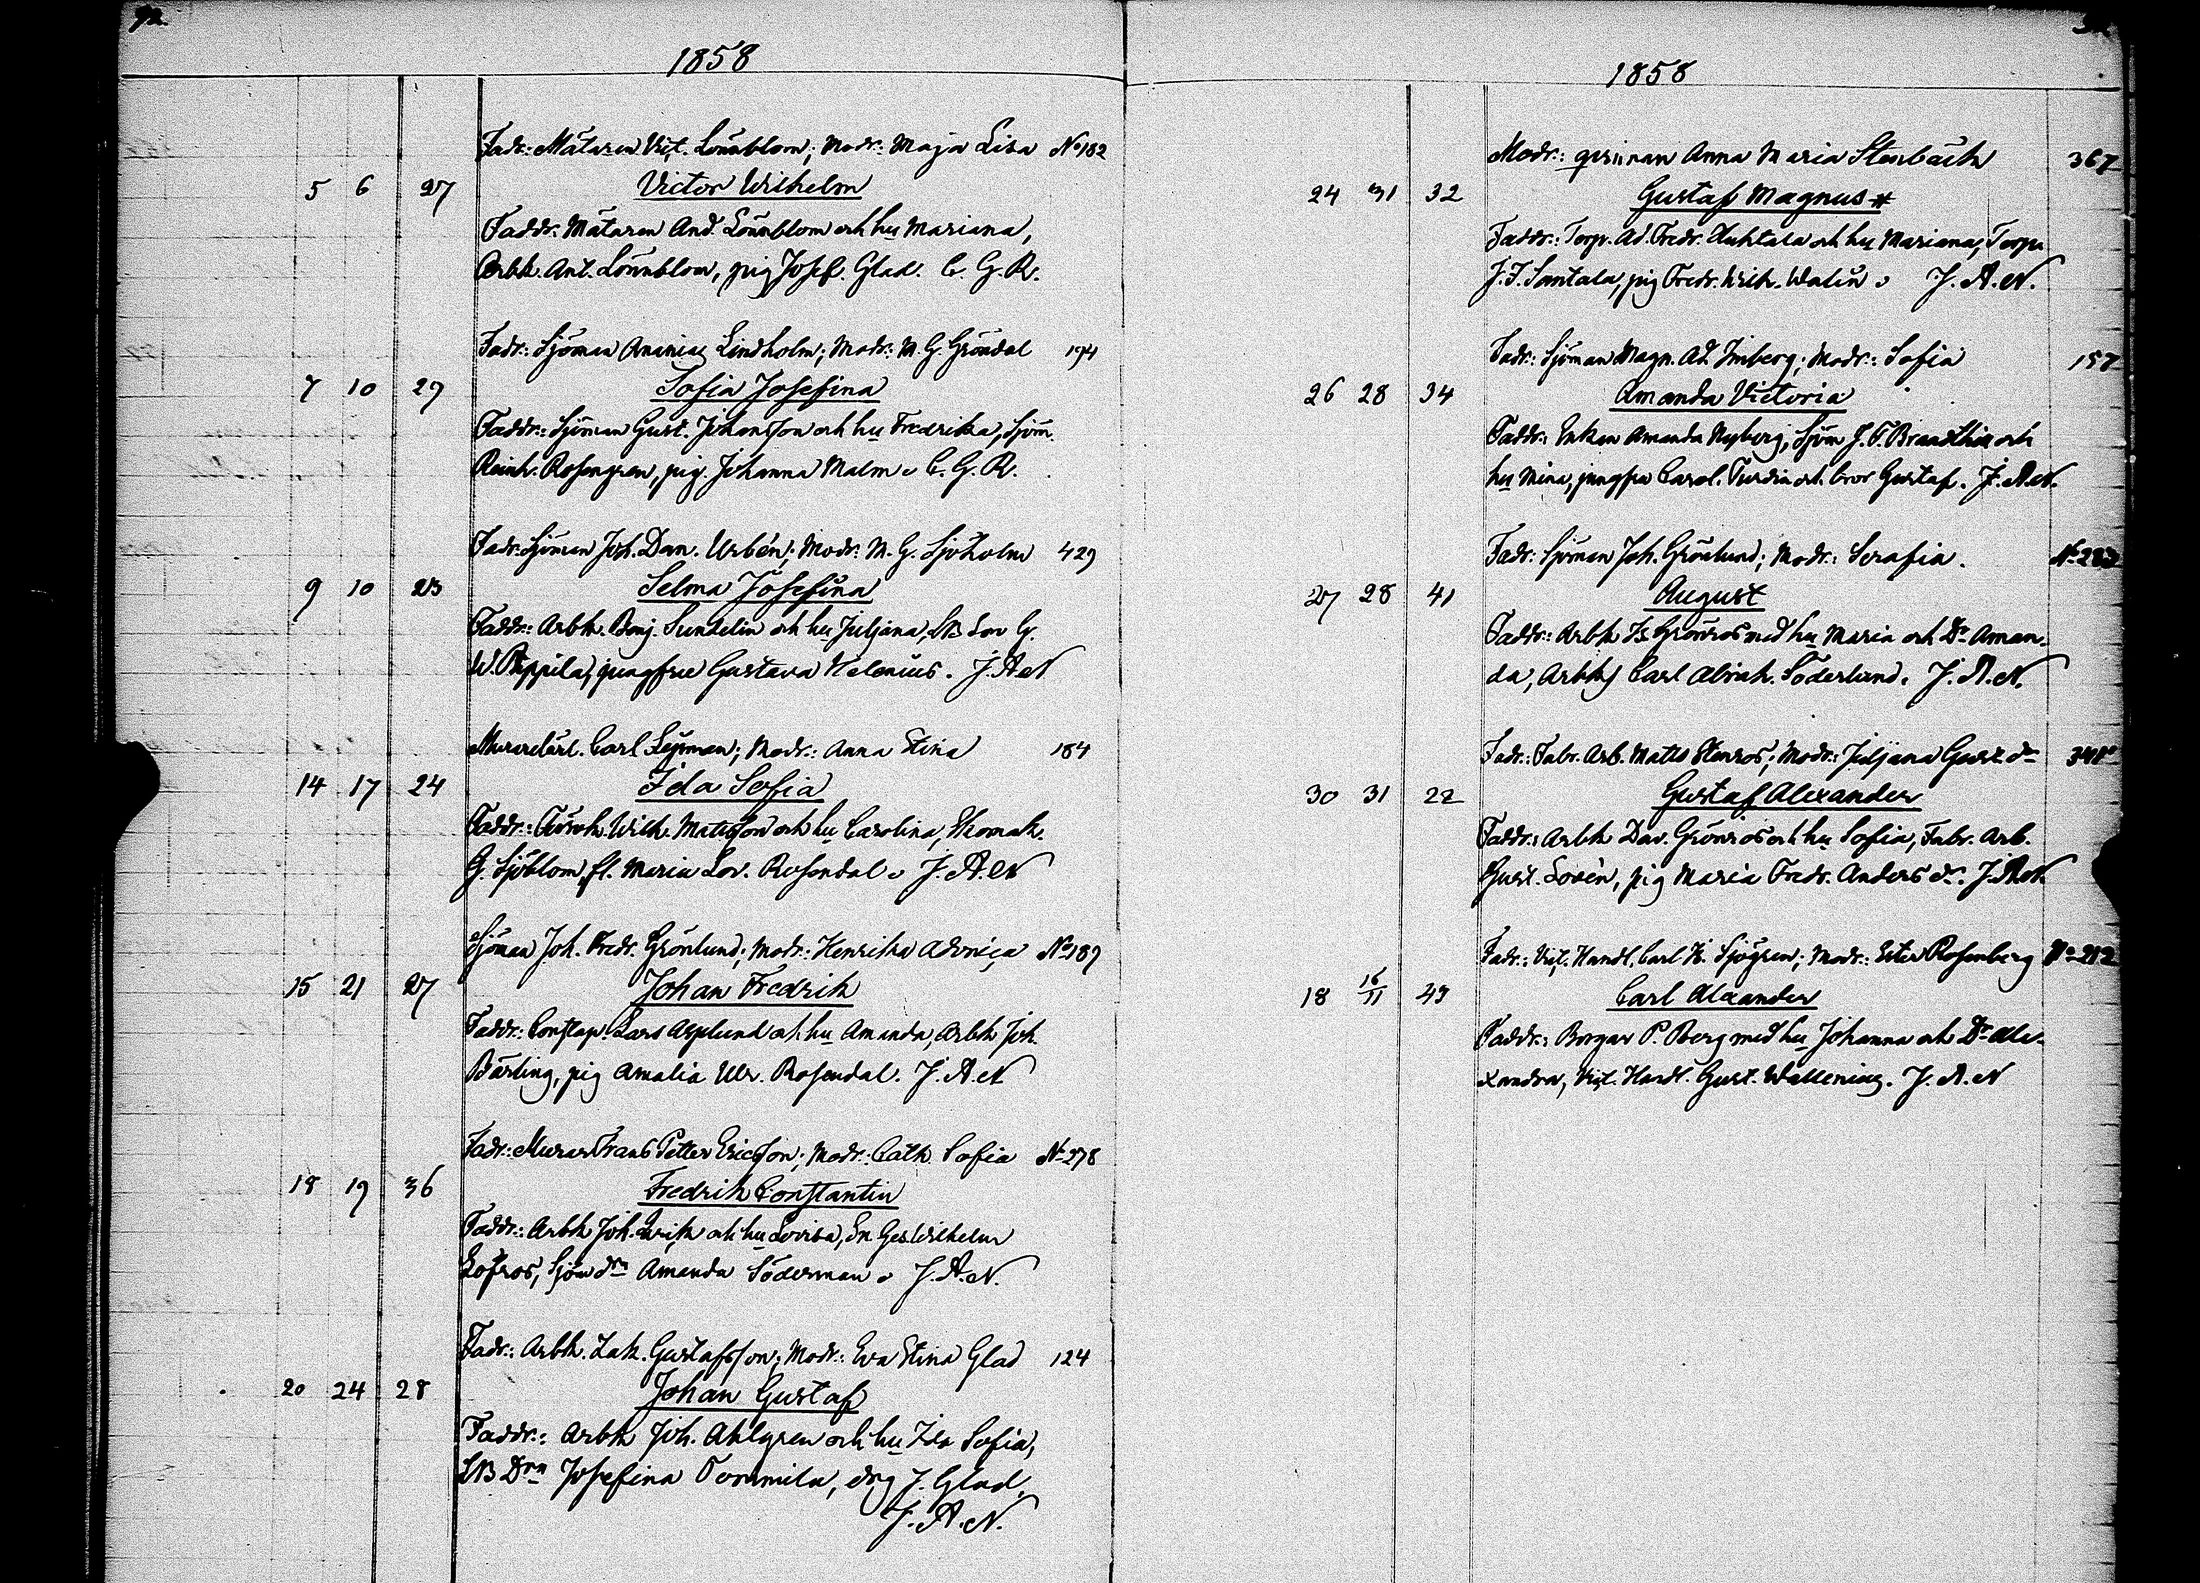 92.
1858
Fadr: Mätaren Vict. Lönnblom; Modr: Maja Lisa No 182
5 6 27 Victor Wilhelm
Faddr: Mätaren And. Lönnblom och hu Mariana,
Arbk. Ant. Lönnblom, pig Josef. Glad. C. G. R.
Fadr: Sjöman Ananias Lindholm; Modr: M. G. Gröndal 194
7 10 29 Sofia Josefina
Faddr: Sjöman Gust. Johansson och hu Fredrika, Sjöm.
Reinh. Rosengren, pig. Johanna Malm. C. G. R.
Fadr: Sjöman Joh. Dan. Urbén; Modr: M. G. Sjöholm 429
9 10 Selma Josefina
Faddr: Arbk. Benj. Sundelin och hu Juljana, LB Son G.
W. jungfru Gustava Helenius. J. A. N
Carl Modr: Anna Stina 184
14 17 24 Ida Sofia
Faddr: Wilh. Matsson och hu Carolina, Skomak.
G. Sjöblom, fl. Maria Lov. Rosendal. J. A. N
Sjöman Joh. Fredr. Grönlund; Modr: Henrika No 189
15 21 27 Johan Fredrik
Faddr: Constap. Lars Asplund och hu Amanda, Arbk Joh.
Bärling, pig Amalia Ulr. Rosendal. J. A. N
Fadr: Murar Frans Petter Ericsson; Modr: Cath. Sofia No 278
18 19 36 Fredrik Constantin
Faddr: Arbk Joh. och hu Lovisa, Sn Ges. Wilhelm
Löfros, Sjöm drn Amanda Söderman. J. A. N.
Fadr: Arbk. Zak. Gustafsson; Modr: Eva Stina Glad 124
20 24 28 Johan Gustaf
Faddr: Arbk Joh. Ahlgren och hu Ida Sofia,
LB Drn Josefina Tommila, drg J. Glad.
J. A. N.
1858
Modr: qvinnan Anna Maria Stenbäck 367
24 31 32 Gustaf Magnus *
Faddr: Torp. Ad. Fredr. Huhtala och hu Mariana, Torpn
J. F. Santala, pig Fredr. Wilh. Walin. J. A. N.
Fadr: Sjöman Magn. Ad. Imberg; Modr: Sofia 157
26 28 34 Amanda Victoria
Faddr: Enkan Amanda Nyberg, Sjöm J. F. och
hu Mina, jungfru Carol. och bror Gustaf. J. A. N.
Fadr: Sjöman Joh. Grönlund; Modr: Serafia.
27 28 41 August
Faddr: Arbk Is. Grönros med hu Maria och Dr Aman-
da, Arbk Carl Abrah. Söderlund. J. A. N.
Fadr: Fabr. Arb. Matts Stenros; Modr: Juljana Gust. dr
30 31 22 Gustaf Alexander
Faddr: Arbk Dav. Grönros och hu Sofia, Fabr. Arb.
Gust. Lovén, pig Maria Fredr. Anders dr. J. A. N
Fadr: Vict. Handl. Carl H. Sjögren; Modr: Ester Rosenberg No 212
18 16/11 43 Carl Alexander
Faddr: Borgar P. Berg med hu Johanna och Dr Ale-
xandra, Vict. Handl. Gust. Wallenius. J. A. N